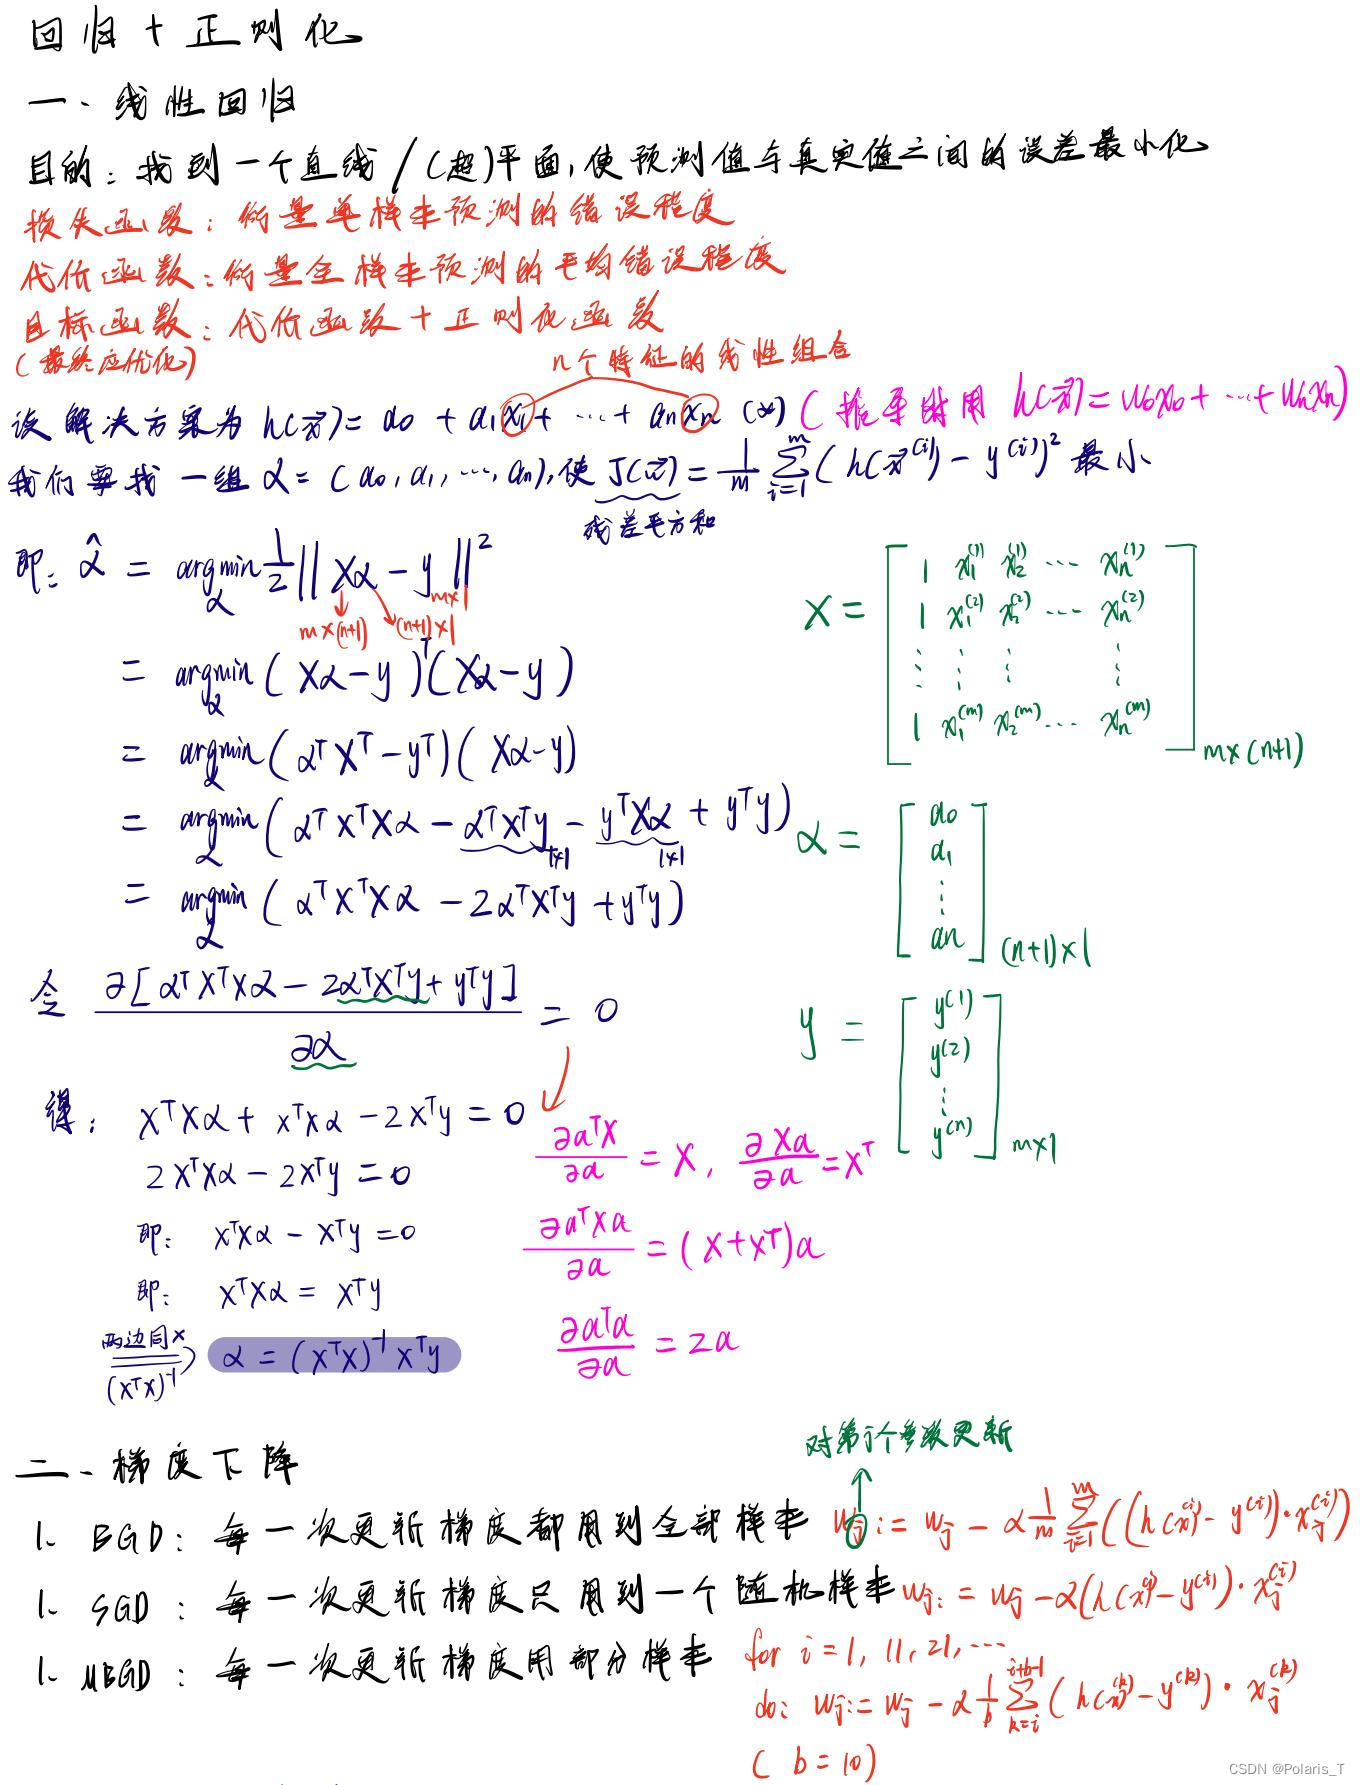 回归+正则化
一、线性回归
目的:找到一个直线/(超)平面,使预测值与真实值之间的误差最小化
损失函数:衡量单样本预测的错误程度
代价函数:衡量全样本预测的平均错误程度
目标函数:代价函数+正则化函数
(最终应优化)
n个特征的线性组合
设解决方案为 h(x⃗)= a₀ + a₁x₁+ ⋯ + aₙxₙ (*) (推导时用 h(x⃗)= w₀x₀+ ⋯ + wₙxₙ)
我们要找一组α = (a₀, a₁, ⋯, aₙ),使 J(w⃗) = 1/m ∑_{i=1}^{m} ( h(x⃗⁽ⁱ⁾) - y⁽ⁱ⁾ )² 最小
残差平方和
即: α̂ = argmin_α 1/2 || Xα - y ||²
m×(n+1) (n+1)×1 m×1
= argmin_α ( Xα - y )ᵀ ( Xα - y )
= argmin_α ( αᵀXᵀ - yᵀ )( Xα - y )
= argmin_α ( αᵀXᵀXα - αᵀXᵀy - yᵀXα + yᵀy )
1×1 1×1
= argmin_α ( αᵀXᵀXα - 2αᵀXᵀy + yᵀy )
X = [ 1 x₁⁽¹⁾ x₂⁽¹⁾ ⋯ xₙ⁽¹⁾
1 x₁⁽²⁾ x₂⁽²⁾ ⋯ xₙ⁽²⁾
⋮ ⋮ ⋮ ⋮
1 x₁⁽ᵐ⁾ x₂⁽ᵐ⁾ ⋯ xₙ⁽ᵐ⁾ ] m×(n+1)
α = [ a₀
a₁
⋮
aₙ ] (n+1)×1
y = [ y⁽¹⁾
y⁽²⁾
⋮
y⁽ⁿ⁾ ] m×1
令 ∂[ αᵀXᵀXα - 2αᵀXᵀy + yᵀy ] / ∂α = 0
得: XᵀXα + XᵀXα - 2Xᵀy = 0
2XᵀXα - 2Xᵀy = 0
即: XᵀXα - Xᵀy = 0
即: XᵀXα = Xᵀy
两边同×
(XᵀX)⁻¹
α = (XᵀX)⁻¹ Xᵀy
∂aᵀX/∂a = X, ∂Xa/∂a = Xᵀ
∂aᵀXa/∂a = (X+Xᵀ)a
∂aᵀa/∂a = 2a
二、梯度下降
对第j个参数更新
1. BGD: 每一次更新梯度都用到全部样本 wⱼ := wⱼ - α 1/m ∑_{i=1}^{m} ((h(x)⁽ⁱ⁾ - y⁽ⁱ⁾)·xⱼ⁽ⁱ⁾)
1. SGD: 每一次更新梯度只用到一个随机样本 wⱼ := wⱼ - α(h(x)⁽ⁱ⁾ - y⁽ⁱ⁾)·xⱼ⁽ⁱ⁾
1. MBGD: 每一次更新梯度用部分样本 for i = 1, 11, 21, ⋯
do: wⱼ := wⱼ - α 1/b ∑_{k=i}^{i+b-1} ( h(x)⁽ᵏ⁾ - y⁽ᵏ⁾ )·xⱼ⁽ᵏ⁾
( b = 10 )
CSDN @Polaris_T